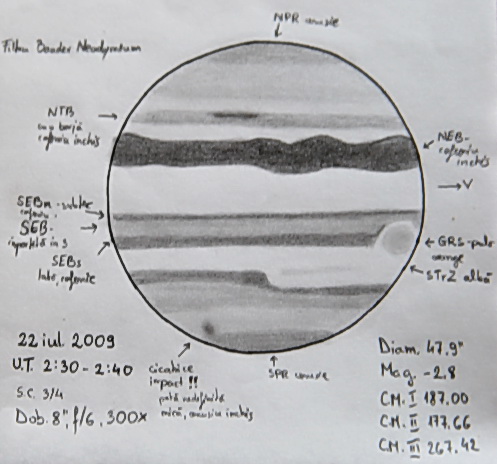 NPR cenusie
Filtru Baader Neodymium
NTB
cu o barjă
cafeniu închis
NEB-
cafeniu
închis
V
SEBn - subtire
cafeniu
SEB
împărțită în 3
SEBs
lată, cafenie
GRS - pale
orange
STrZ albă
22 iul. 2009
U.T. 2:30 - 2:40
S.C. 3/4
Dob. 8", f/6, 300x
cicatrice
impact !!
pată nedefinită
mică, cenusiu închis
SPR cenusie
Diam. 47,9"
Mag. -2,8
CM. I 187,00
CM. II 177,66
CM. III 267,42